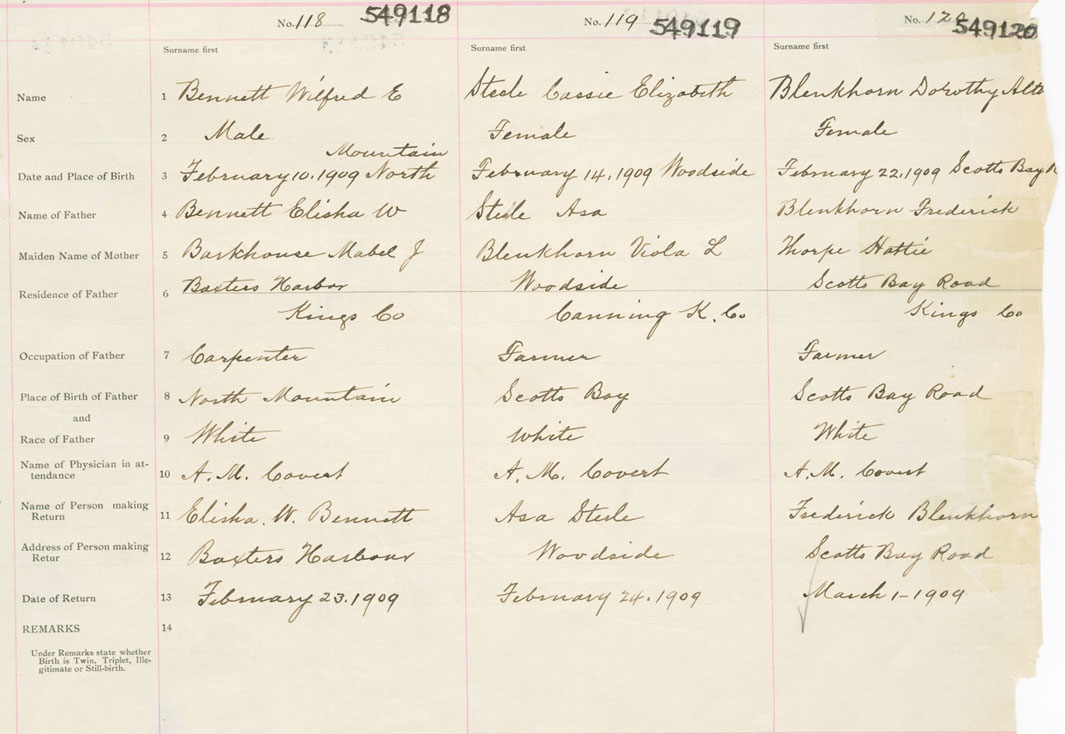 No. 118 549118 No. 119 549119 No. 120 549120
Surname first Surname first Surname first
Name 1 Bennett Wilfred E Steele Cassie Elizabeth Blenkhorn Dorothy
Sex 2 Male Female Female
Mountain
Date and Place of Birth 3 February 10, 1909 North February 14, 1909 Woodside February 22, 1909 Scotts Bay
Name of Father 4 Bennett Elisha W Steele Asa Blenkhorn Frederick
Maiden Name of Mother 5 Barkhouse Mabel J Blenkhorn Viola L Thorpe Hattie
Residence of Father 6 Baxters Harbor Woodside Scotts Bay Road
Kings Co Canning K. Co Kings Co
Occupation of Father 7 Carpenter Farmer Farmer
Place of Birth of Father 8 North Mountain Scotts Bay Scotts Bay Road
and
Race of Father 9 White White White
Name of Physician in at-
tendance 10 A. M. Covert A. M. Covert A. M. Covert
Name of Person making
Return 11 Elisha. W. Bennett Asa Steele Frederick Blenkhorn
Address of Person making
Retur 12 Baxters Harbour Woodside Scotts Bay Road
Date of Return 13 February 23. 1909 February 24. 1909 March 1 - 1909
REMARKS 14
Under Remarks state whether
Birth is Twin, Triplet, Ille-
gitimate or Still-birth.